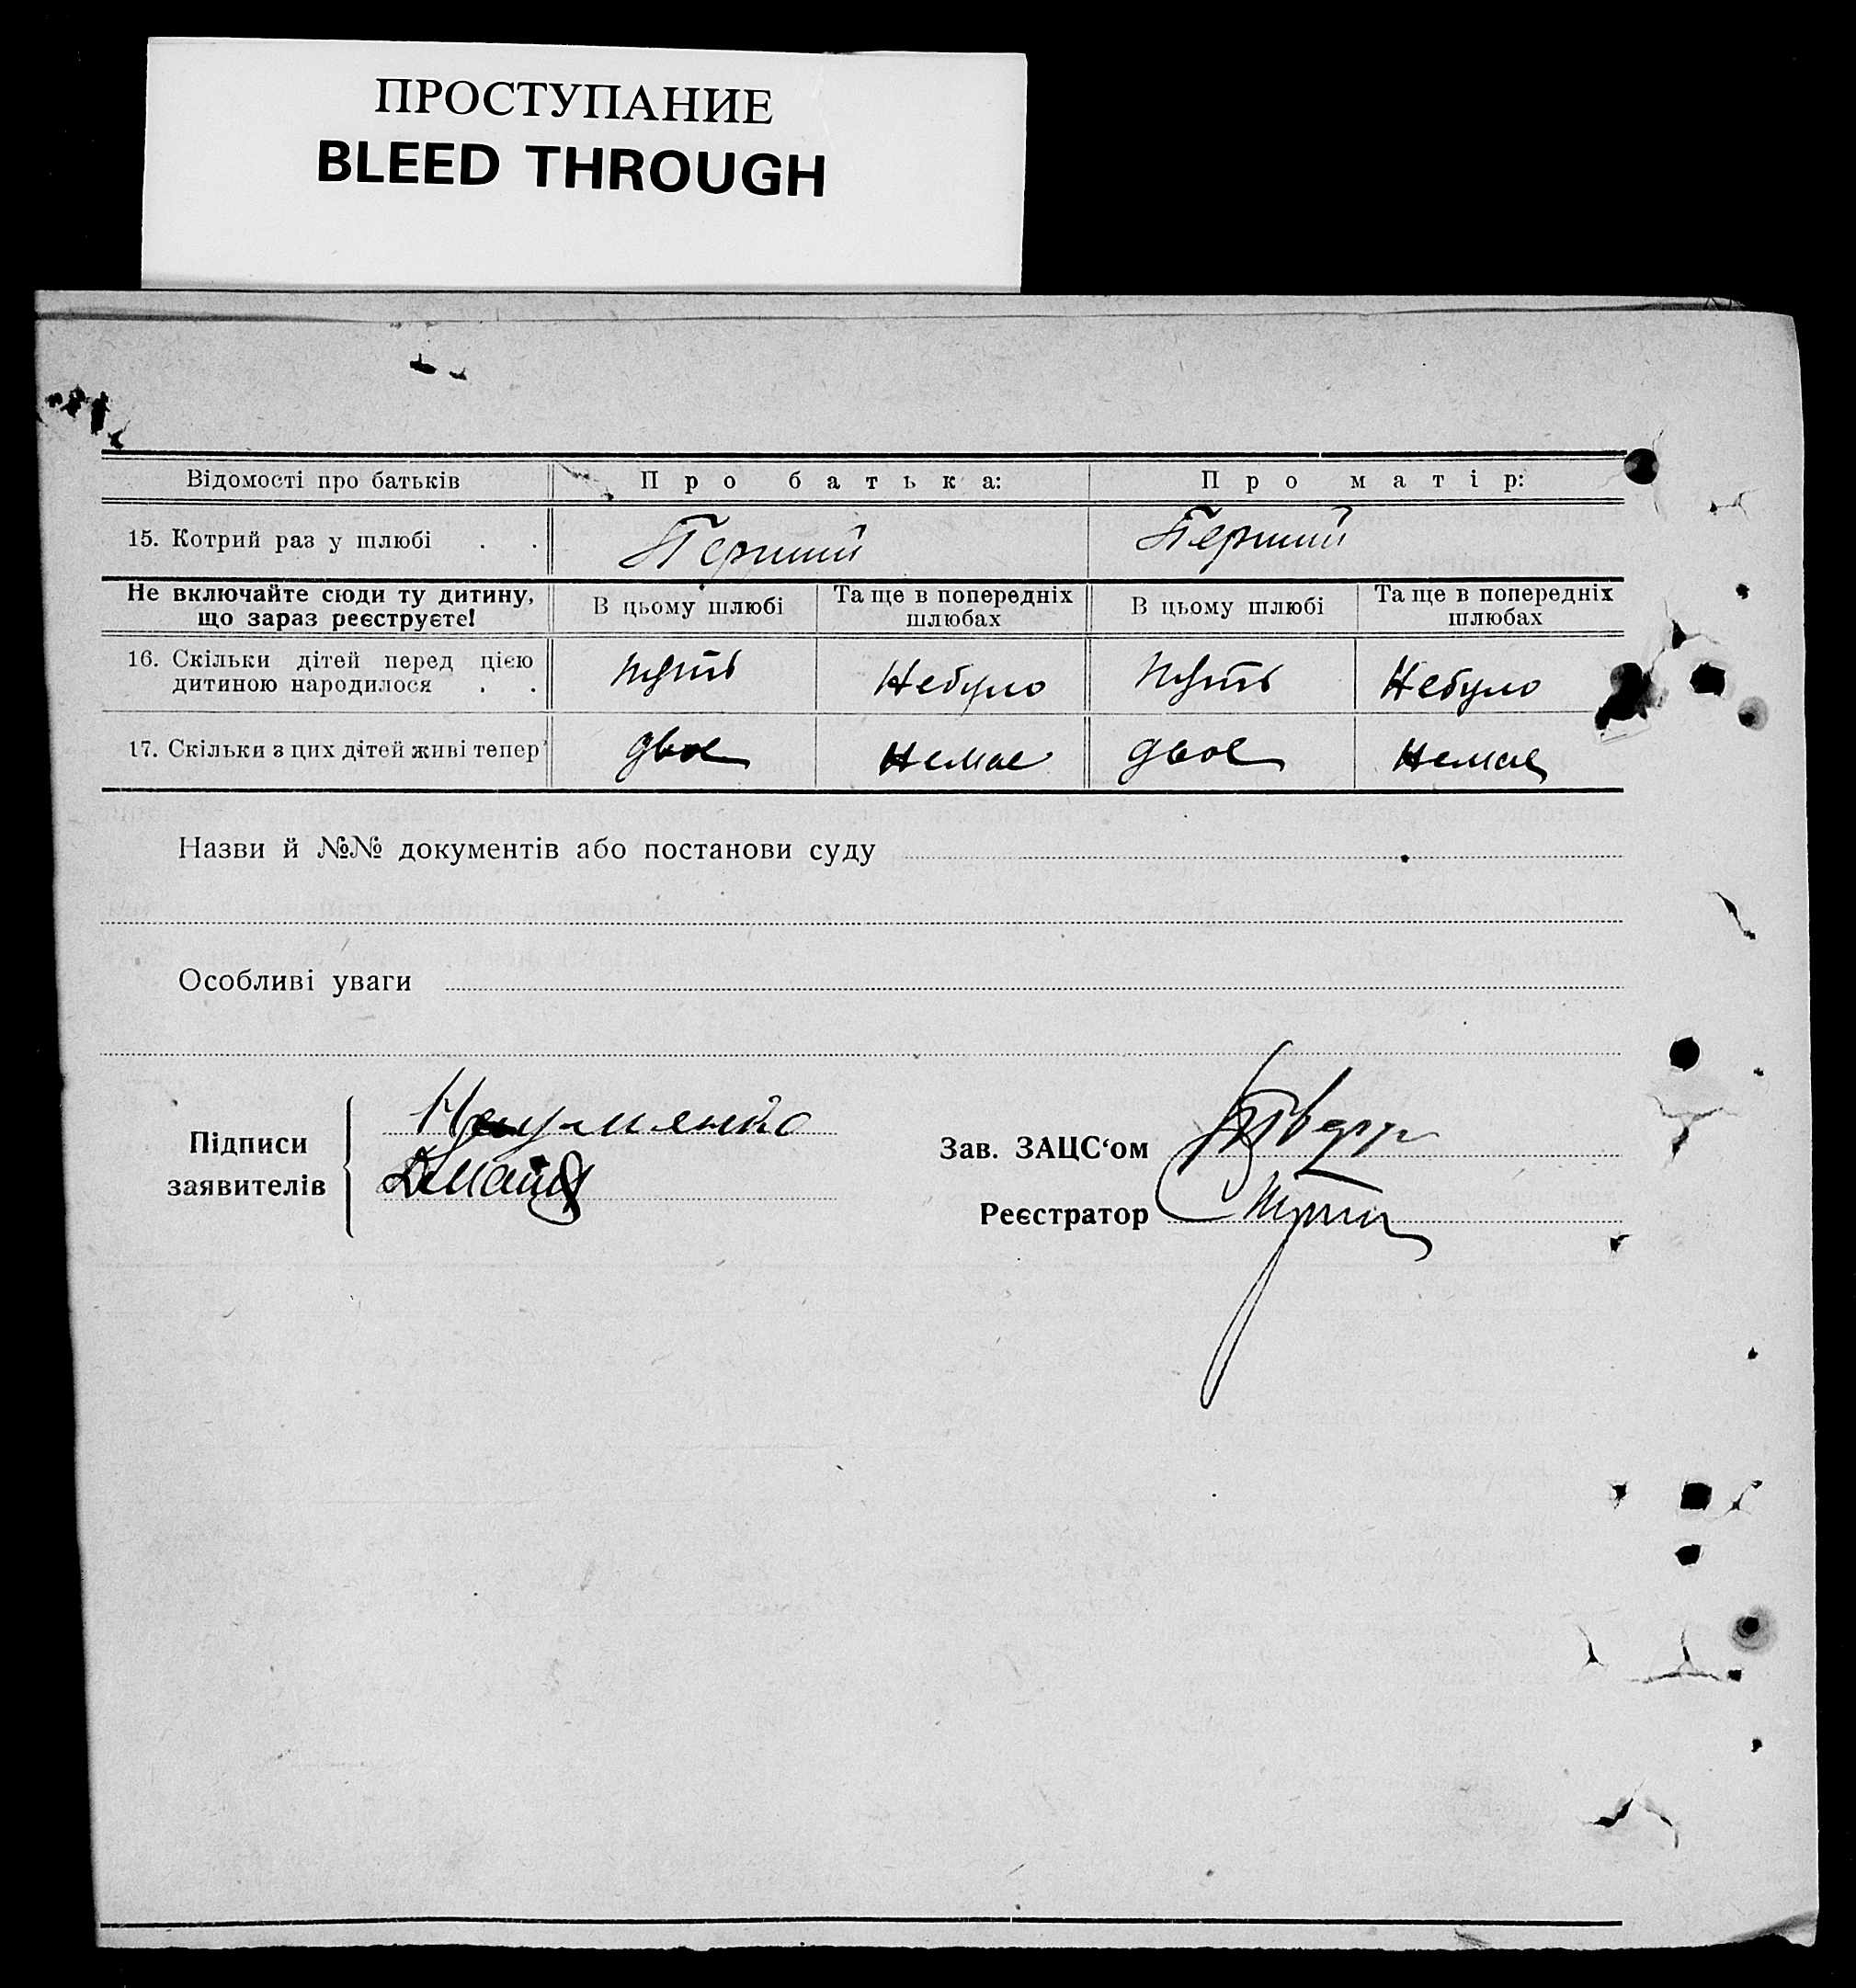 ПРОСТУПАНИЕ
BLEED THROUGH
Відомості про батьків Про батька: Про матір:
15. Котрий раз у шлюбі . . Перший Перший
Не включайте сюди ту дитину, що зараз реєструєте! В цьому шлюбі Та ще в попередніх шлюбах В цьому шлюбі Та ще в попередніх шлюбах
16. Скільки дітей перед цією
дитиною народилося . . Небуло Небуло
17. Скільки з цих дітей живі тепер двое Немае двое Немає
Назви й №№ документів або постанови суду
Особливі уваги
Підписи
заявителів
Зав. ЗАЦС‘ом
Реєстратор